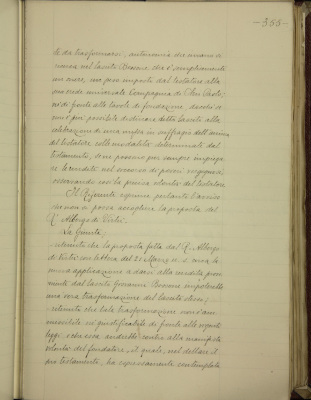 - 355 -
te da trasformarsi, autonomia che invano si
cerca nel lascito Bessone che è, semplicemente
un onere, un peso imposto dal testatore alla
sua erede universale Compagnia di San Paolo;
nè di fronte alla tavola di fondazione, discutere si
può è possibile distinare della lasciti alla
celebrazione di una messa in suffragio dell'anima
del testatore, colle modalità determinate dal
testamento, sono possono per sempre impiegar
si le rendite nel ricovero di poveri
osservando così la precisa volontà del testatore.
Il Riferente esprime pertanto l'avviso
che non si possa accogliere la proposta del
R. Albergo di Virtù.
La Giunta;
ritenuto che la proposta fatta dal R. Albergo
di Virtù con lettera del 21 Marzo u. s. circa la
nuova applicazione a darsi alla rendita prove
niente dal lascito Giovanni Bessone importerebbe
una vera trasformazione del lascito stesso;
ritenuto che tale trasformazione non è am
missibile nè giustificabile di fronte alle vigenti
leggi, e che essa andrebbe contro alla manifesta
volontà del fondatore, il quale, nel dettare il
suo testamento, ha espressamente contemplato